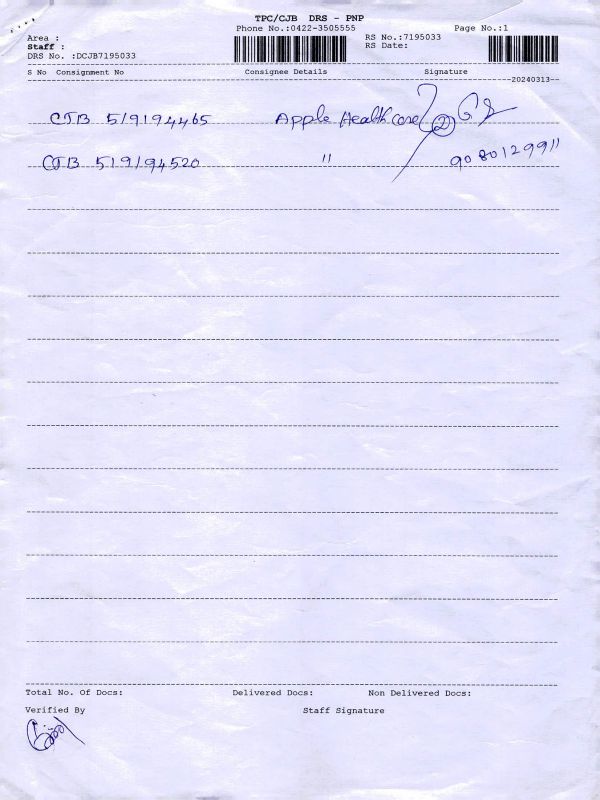 TPC/CJB DRS - PNP
Phone No.:0422-3505555
Page No.:1
Area :
RS No.:7195033
Staff :
RS Date:
DRS No. :DCJB7195033
S No Consignment No Consignee Details Signature
20240313
CJB 519194465 Apple Healthcare 2
CJB 519194520 " 9080129911
Total No. Of Docs: Delivered Docs: Non Delivered Docs:
Verified By Staff Signature